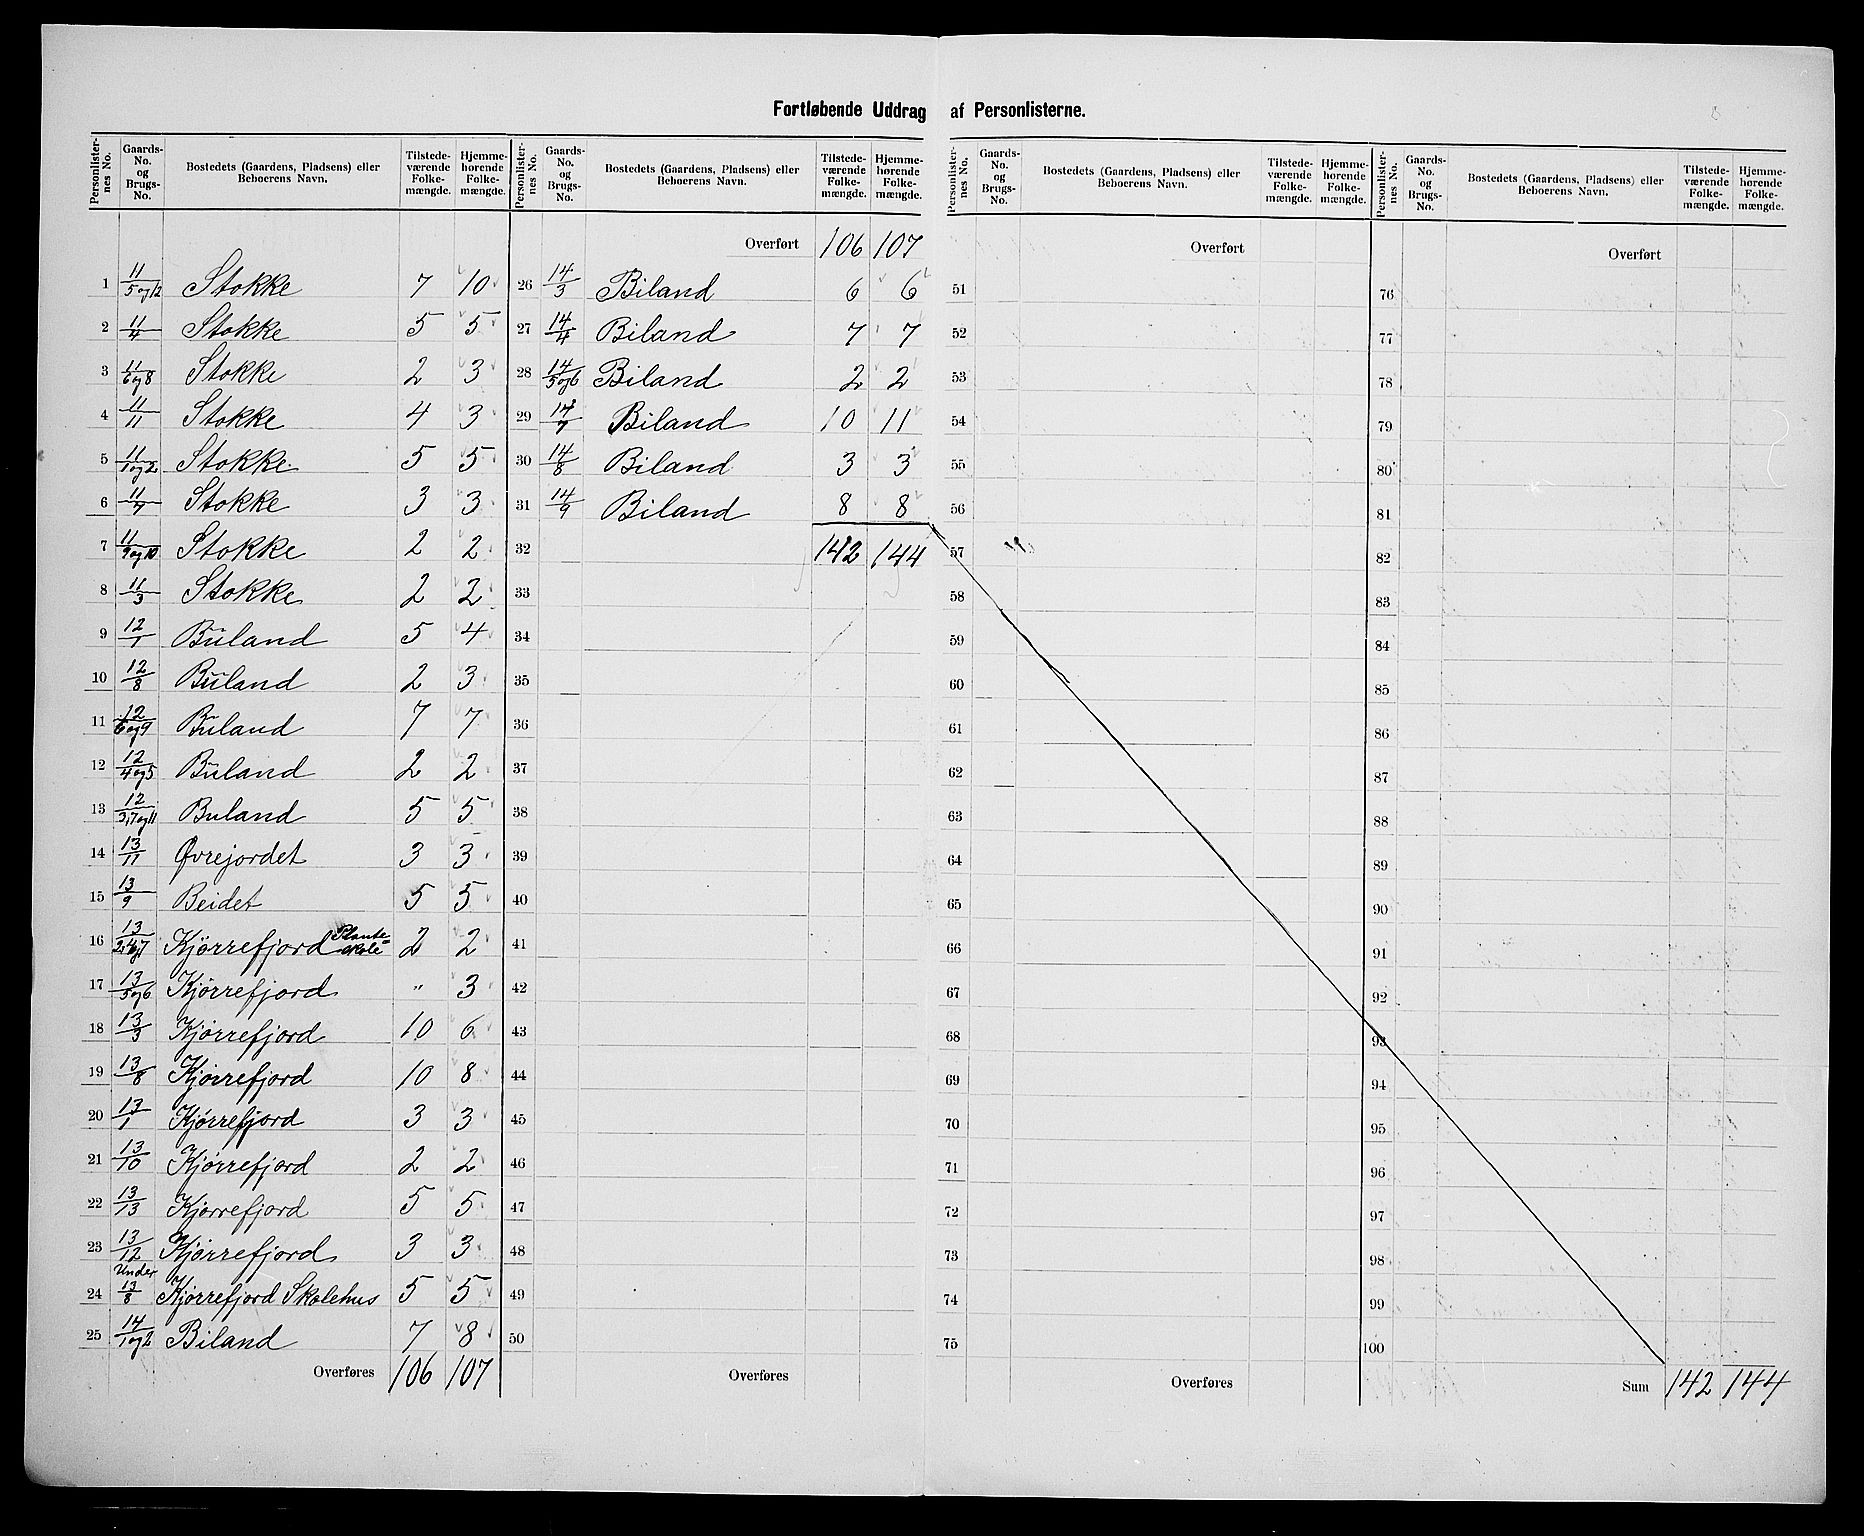 Fortløbende Uddrag af Personlisterne.
Personlisternes No. | Gaards-No. og Brugs-No. | Bostedets (Gaardens, Pladsens) eller Beboerens Navn. | Tilstedeværende Folkemængde. | Hjemmehørende Folkemængde.
1 11/5 og 12 Stokke 7 10
2 11/4 Stokke 5 5
3 11/6 og 8 Stokke 2 3
4 11/11 Stokke 4 3
5 11/1 og 2 Stokke 5 5
6 11/7 Stokke 3 3
7 11/9 og 10 Stokke 2 2
8 11/3 Stokke 2 2
9 12/1 Buland 5 4
10 12/8 Buland 2 3
11 12/6 og 9 Buland 7 7
12 12/4 og 5 Buland 2 2
13 12/3,7 og 11 Buland 5 5
14 13/11 Øvrejordet 3 3
15 13/9 Beidet 5 5
16 13/2,4 og 7 Kjørrefjord Planteskole 2 2
17 13/5 og 6 Kjørrefjord " 3
18 13/3 Kjørrefjord 10 6
19 13/8 Kjørrefjord 10 8
20 13/1 Kjørrefjord 3 3
21 13/10 Kjørrefjord 2 2
22 13/13 Kjørrefjord 5 5
23 13/12 Kjørrefjord 3 3
24 Under 13/8 Kjørrefjord Skolehus 5 5
25 14/1 og 2 Biland 7 8
Overføres 106 107
Personlisternes No. | Gaards-No. og Brugs-No. | Bostedets (Gaardens, Pladsens) eller Beboerens Navn. | Tilstedeværende Folkemængde. | Hjemmehørende Folkemængde.
Overført 106 107
26 14/3 Biland 6 6
27 14/4 Biland 7 7
28 14/5 og 6 Biland 2 2
29 14/7 Biland 10 11
30 14/8 Biland 3 3
31 14/9 Biland 8 8
32 142 144
33
34
35
36
37
38
39
40
41
42
43
44
45
46
47
48
49
50
Overføres
Personlisternes No. | Gaards-No. og Brugs-No. | Bostedets (Gaardens, Pladsens) eller Beboerens Navn. | Tilstedeværende Folkemængde. | Hjemmehørende Folkemængde.
Overført
51
52
53
54
55
56
57
58
59
60
61
62
63
64
65
66
67
68
69
70
71
72
73
74
75
Overføres
Personlisternes No. | Gaards-No. og Brugs-No. | Bostedets (Gaardens, Pladsens) eller Beboerens Navn. | Tilstedeværende Folkemængde. | Hjemmehørende Folkemængde.
Overført
76
77
78
79
80
81
82
83
84
85
86
87
88
89
90
91
92
93
94
95
96
97
98
99
100
Sum 142 144